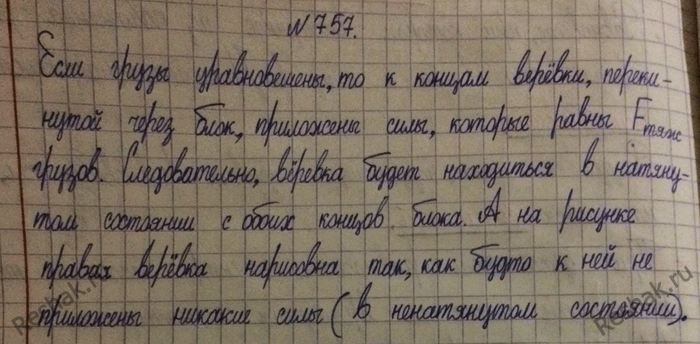 №757.
Если грузы уравновешены, то к концам верёвки, переки-
нутой через блок, приложены силы, которые равны Fтяж
грузов. Следовательно, вёревка будет находиться в натяну-
том состоянии с обоих концов блока. А на рисунке
правая верёвка нарисовна так, как будто к ней не
приложены никакие силы (в ненатянутом состоянии).
Reshak.ru
Reshak.ru